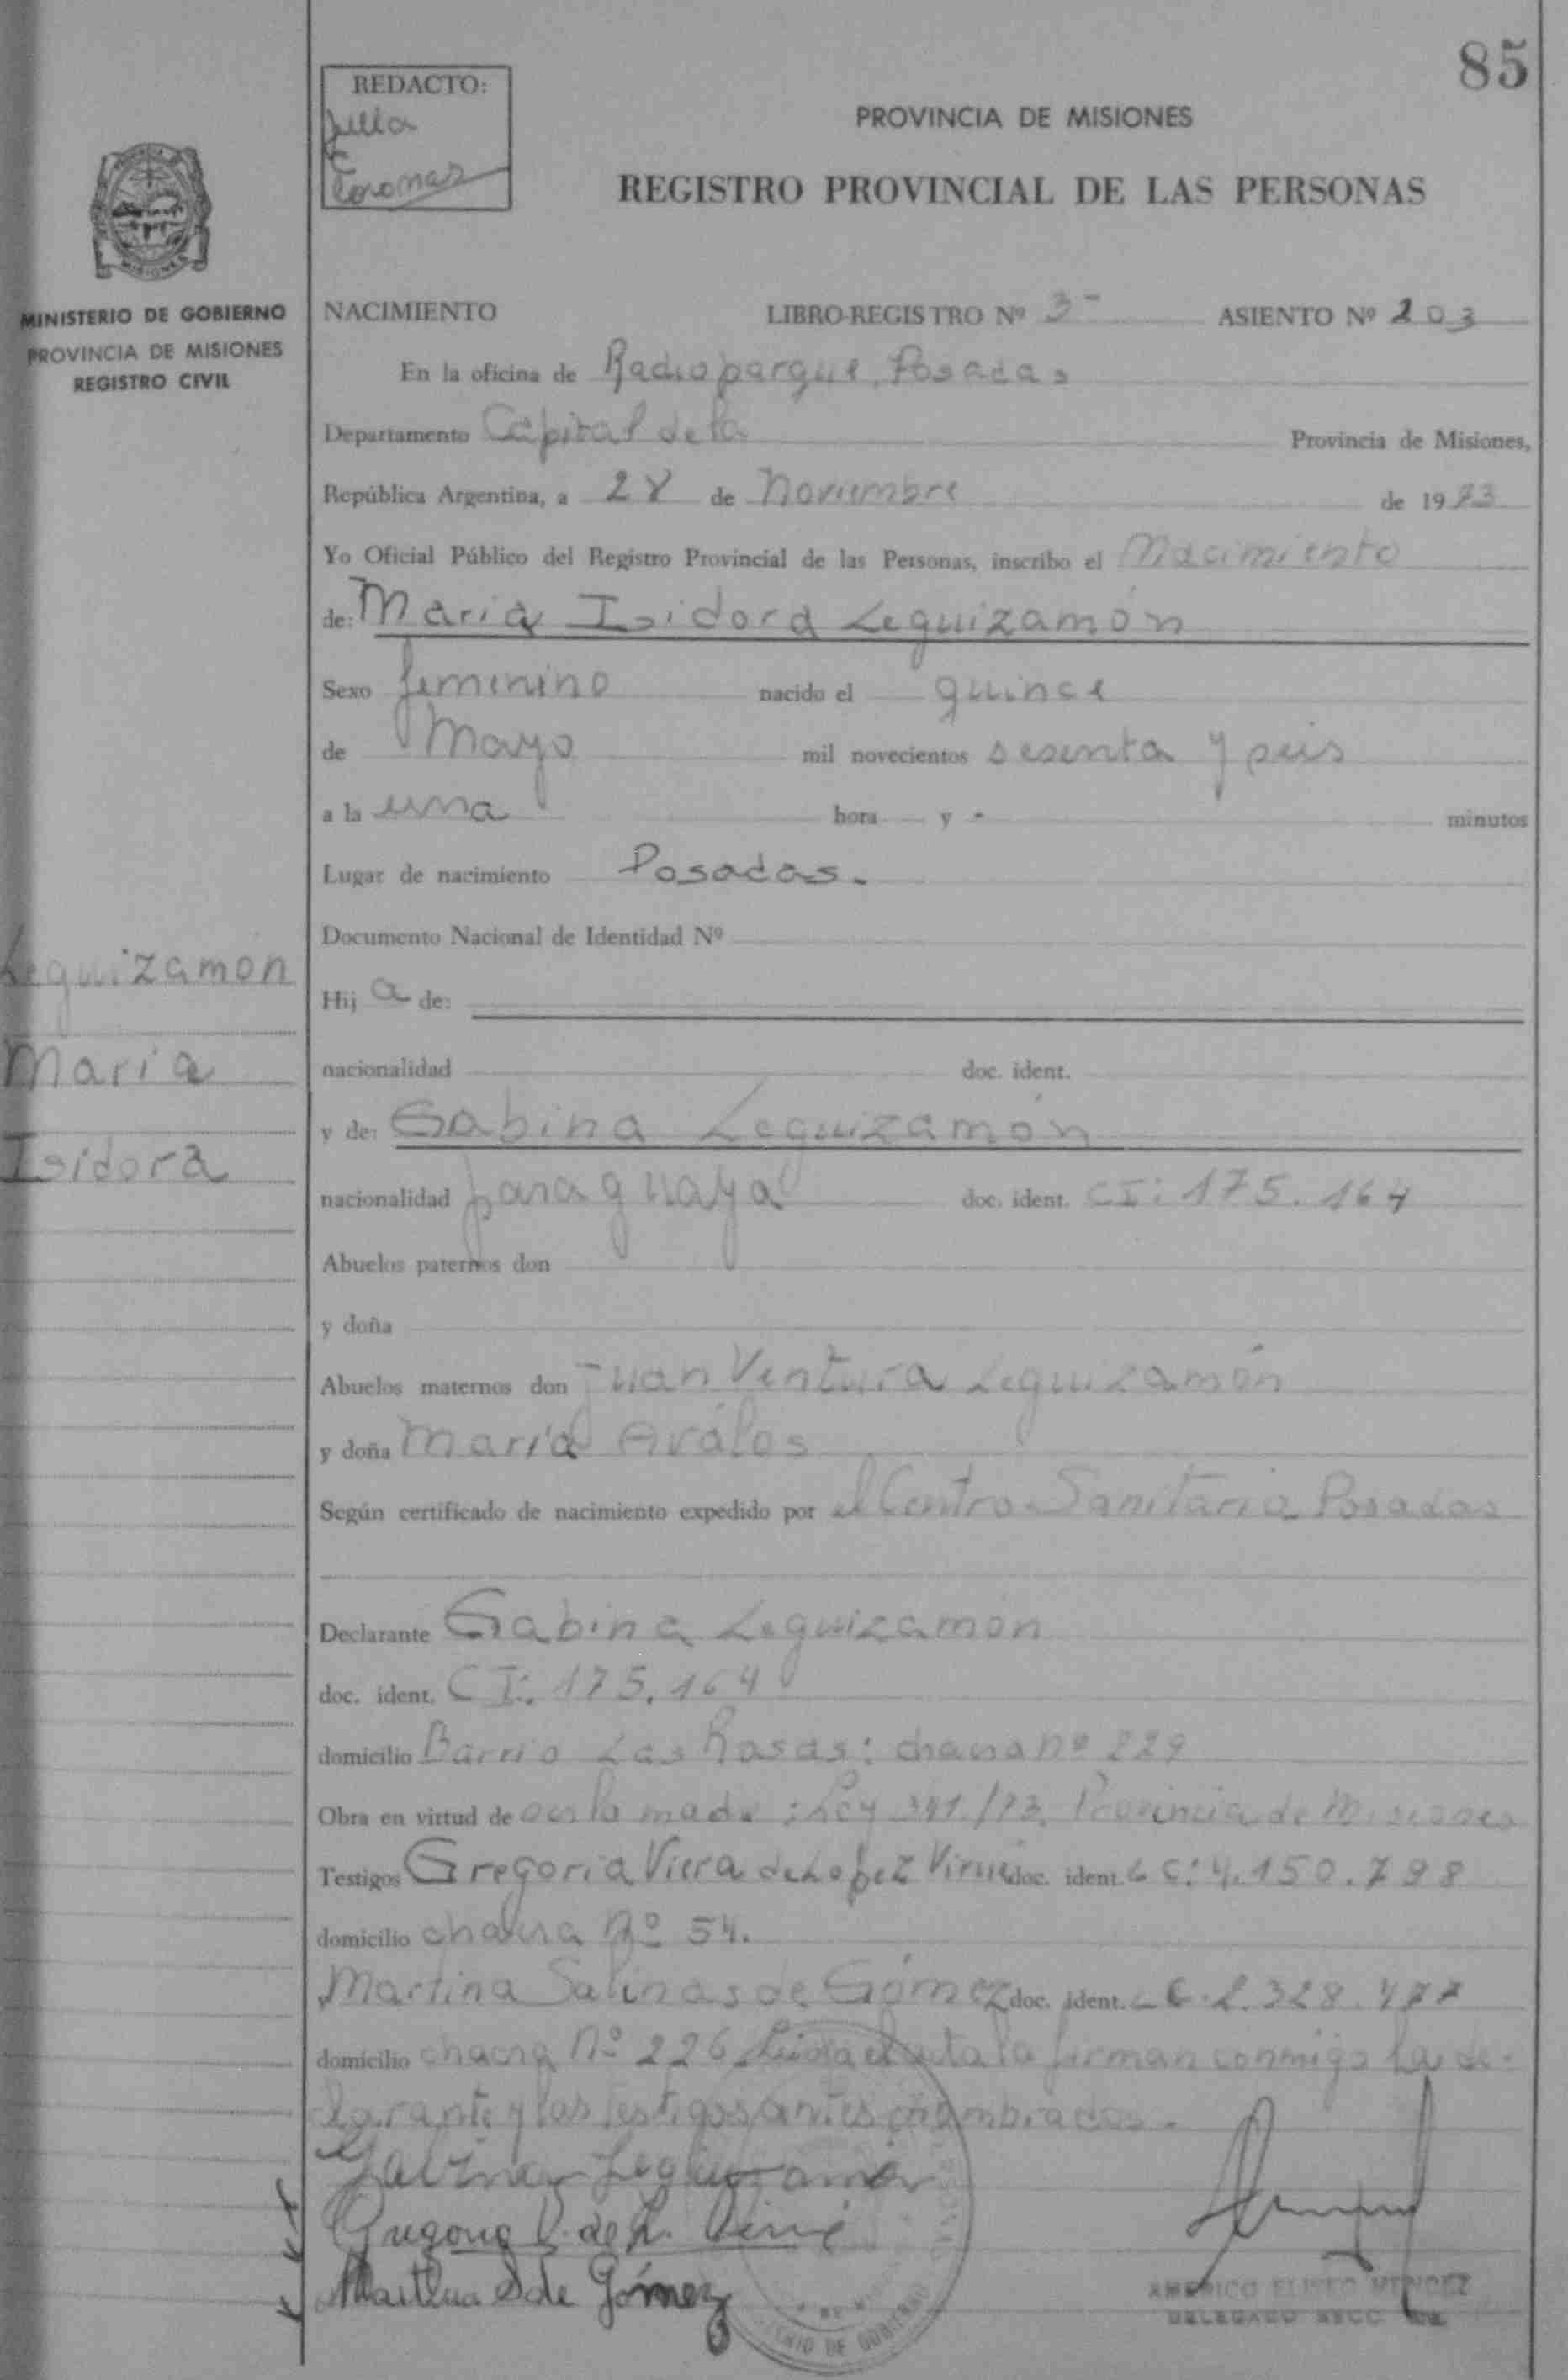 85
REDACTO:
PROVINCIA DE MISIONES
REGISTRO PROVINCIAL DE LAS PERSONAS
MISIONES
MINISTERIO DE GOBIERNO
PROVINCIA DE MISIONES
REGISTRO CIVIL
NACIMIENTO LIBRO-REGISTRO Nº 3- ASIENTO Nº 203
En la oficina de Radioparque, Posadas
Departamento Capital de la Provincia de Misiones,
República Argentina, a 28 de Noviembre de 1973
Yo Oficial Público del Registro Provincial de las Personas, inscribo el Nacimiento
de: Maria Isidora Leguizamón
Sexo femenino nacido el quince
de Mayo mil novecientos sesenta y seis
a la una hora y - minutos
Lugar de nacimiento Posadas.
Documento Nacional de Identidad Nº
Leguizamón
Maria
Isidora
Hij a de:
nacionalidad doc. ident.
y de: Gabina Leguizamón
nacionalidad paraguaya doc. ident. CI: 175.164
Abuelos paternos don
y doña
Abuelos maternos don Juan Ventura Leguizamón
y doña María Aválos
Según certificado de nacimiento expedido por el Centro Sanitario Posadas
Declarante Gabina Leguizamón
doc. ident. CI: 175.164
domicilio Barrio Las Rosas: chacra nº 229
Obra en virtud de ser la madre: Ley 391/73. Provincia de Misiones
Testigos Gregoria Viera de Lopez Virué doc. ident. LC: 4.150.798
domicilio chacra Nº 54.
Martina Salinas de Gómez doc. ident. LC. 2.328.477
domicilio chacra Nº 226 Leida el acta la firman conmigo la de-
clarante y los testigos antes nombrados.
Gabina Leguizamon
Gregoria V. de L. Virué
Martina S de Gómez
AMERICO ELISEO MENDEZ
DELEGADO SECC